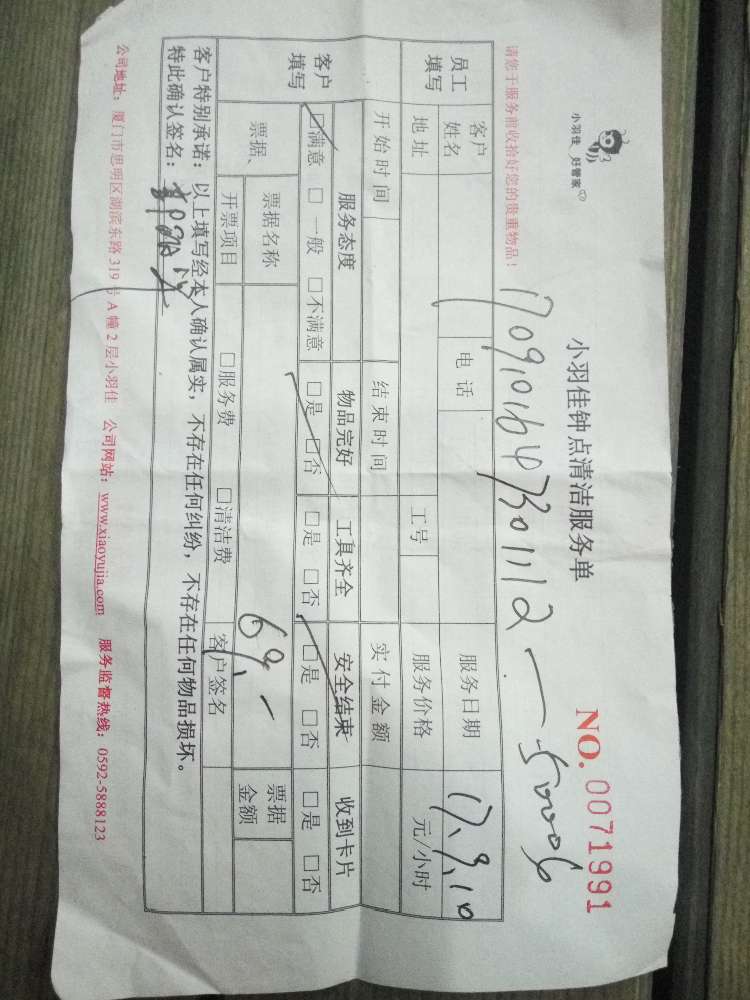 小羽佳 好管家
小羽佳钟点清洁服务单
NO. 0071991
请您于服务前收拾好您的贵重物品!
1709,0164 7301112 — 50006
员工填写 客户姓名 电话 服务日期 17.9.10
地址 工号 服务价格 元/小时
开始时间 结束时间 实付金额
客户填写 服务态度 物品完好 工具齐全 安全结束 收到卡片
□满意 □一般 □不满意 □是 □否 □是 □否 □是 □否 □是 □否
票据、 票据名称 票据金额
开票项目 □服务费 □清洁费 客户签名
客户特别承诺:以上填写经本人确认属实,不存在任何纠纷,不存在任何物品损坏。
特此确认签名:
公司地址:厦门市思明区湖滨东路 319 号 A 幢 2 层小羽佳 公司网站:www.xiaoyujia.com 服务监督热线:0592-5888123